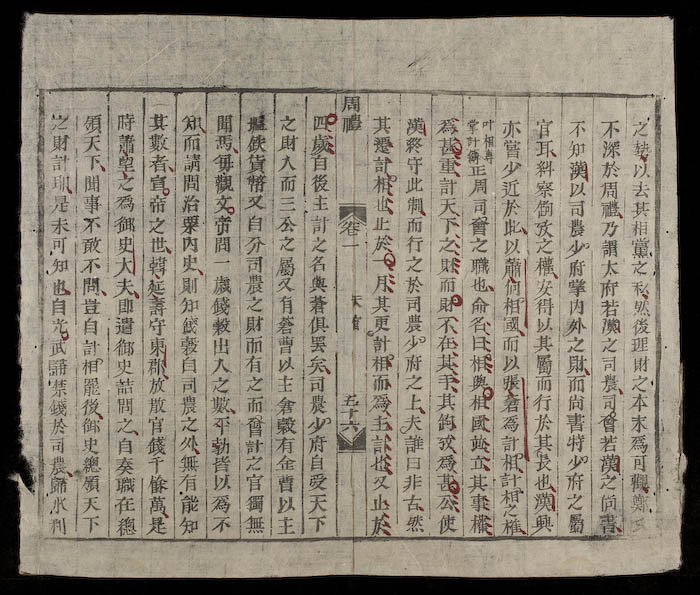 以去其相黨之私然後理財之本末爲可觀鄭氏
不深於周禮乃謂太府若漢之司農司會若漢之尚書
不知漢以司農少府掌內外之財而尚書特少府之屬
官耳糾察鉤攷之權安得以其屬而行於其長也漢興
亦嘗少近於此以蕭何相國而以張蒼爲計相計相之權
叶相專
掌計籍
正周司會之職也命名曰相與相國竝立其事權
爲甚重計天下之財而財不在其手其鉤攷爲甚公使
漢終守此制而行之於司農少府之上夫誰曰非古然
其遷計相也止於一月其更計相而爲主計也又止於
周禮
卷一
天官
五十六
四歲自後主計之名與蒼俱罷矣司農少府自受天下
之財入而三公之屬又有蒼曹以主倉穀有金曹以主
鹽鉄貨幣又自分司農之財而有之而會計之官獨無
聞焉每觀文帝問一歲錢穀出入之數平勃皆以爲不
知而請問治粟內史則知錢穀自司農之外無有能知
其數者宣帝之世韓延壽守東郡放散官錢千餘萬是
時蕭望之爲御史大夫即遣御史詰問之自奏職在總
領天下聞事不敢不問豈自計相罷後御史總領天下
之財計耶是未可知也自光武禁錢於司農歸水利